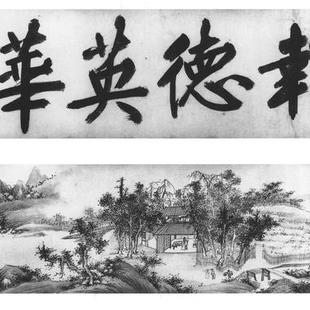 德英華